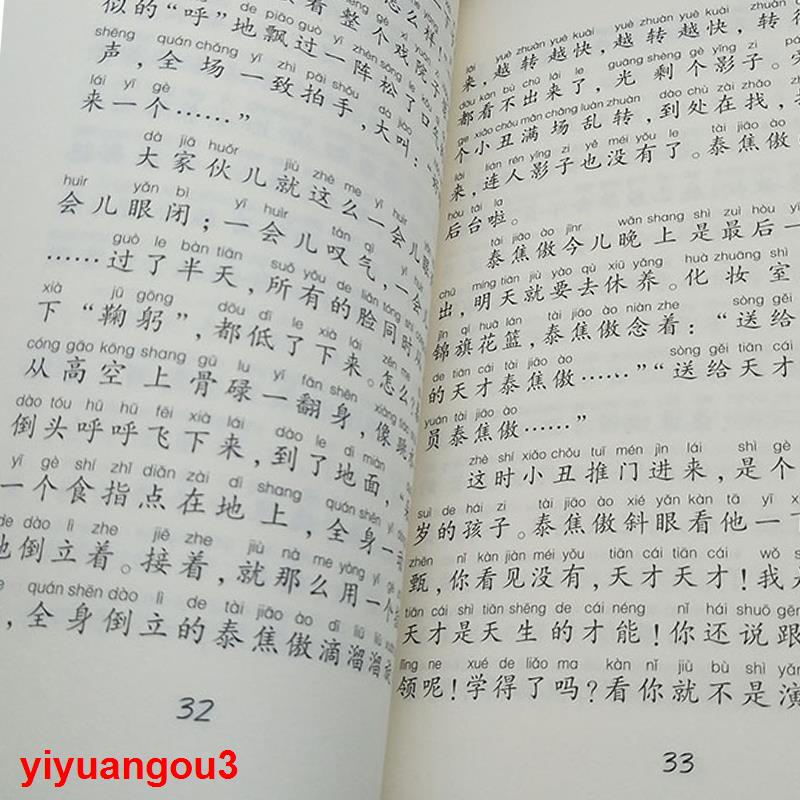 着整个戏院子
似的“呼”地飘过一阵松了口气
声，全场一致拍手，大叫：
来一个……”
大家伙儿就这么一会儿眼
会儿眼闭；一会儿叹气，一会儿
……过了半天，所有的脸同时
下“鞠躬”，都低了下来。怎么？
从高空上骨碌一翻身，像跳
倒头呼呼飞下来，到了地面，
一个食指点在地上，全身一
地倒立着。接着，就那么用一个
，全身倒立的泰焦傲滴溜溜
32
来，越转越快，越转越快，转得
都看不出来了，光剩个影子。
个小丑满场乱转，到处在找，
来，连人影子也没有了。泰焦傲
后台啦。
泰焦傲今儿晚上是最后一
出，明天就要去休养。化妆室
锦旗花篮，泰焦傲念着：“送给
的天才泰焦傲……”“送给天才
员泰焦傲……”
这时小丑推门进来，是个
岁的孩子。泰焦傲斜眼看他一下
甄，你看见没有，天才天才！我
天才是天生的才能！你还说跟
领呢！学得了吗？看你就不是演
33
yiyuangou3